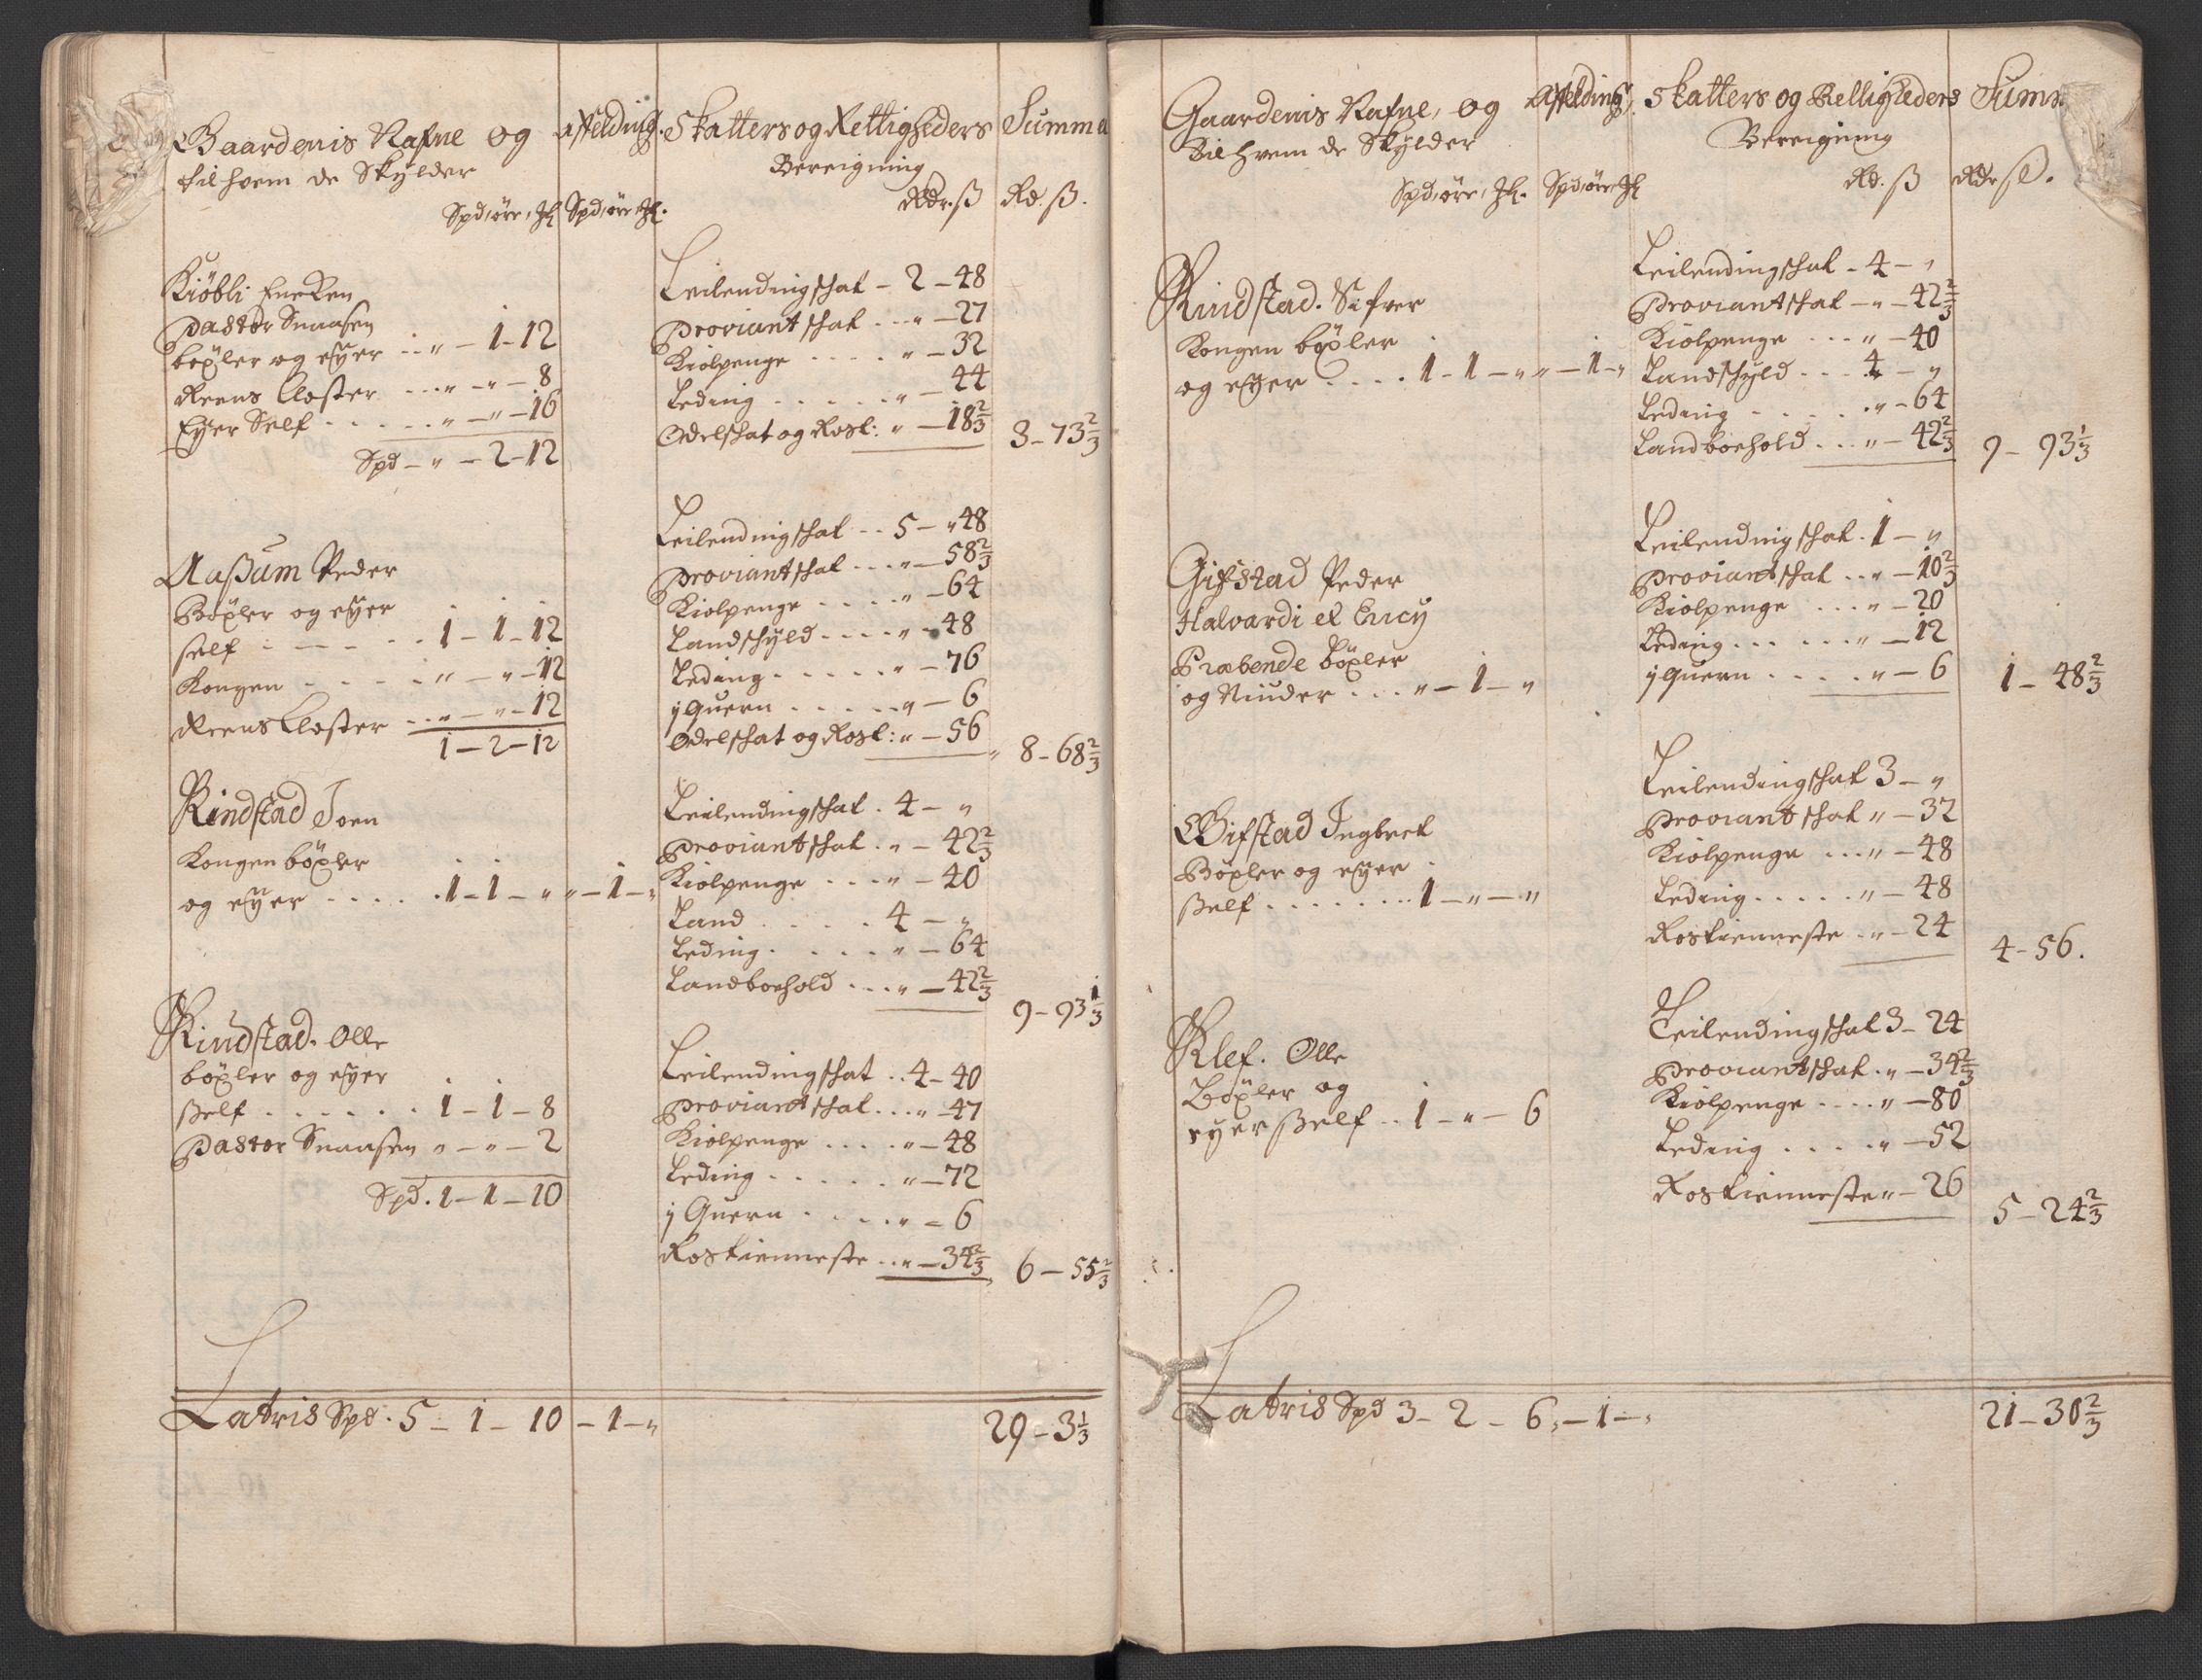 Gaardenis Nafne og
til hvem de Skylder
Affelding.
Skatters og Rettigheders
Bereigning
Summa
Spd, öre, Mk
Spd, öre, Mk.
Rdr. ß
Rd. ß.
Kiöbli Eneken
Pastor Snaasen
böxler og eÿer .. " - 1 - 12
Reens Closter ... " - " - 8
Eÿer Self ..... " - " - 16
Spd - " - 2 - 12
Leilendingschat - 2 - 48
Proviantschat ... " - 27
Kiolpenge .... " - 32
Leding ..... " - 44
Odelschat og Rost: " - 18 2/3
3 - 73 2/3
Aaßum Peder
Böxler og eÿer
self ..... 1 - 1 - 12
Kongen ..... " - " - 12
Reens Closter ... " - " - 12
1 - 2 - 12
Leilendingschat .. 5 - " 48
Proviantschat ... " - 58 2/3
Kiolpenge .... " - 64
Landschÿld .... " - 48
Leding ..... " - 76
j Quern ..... " - 6
Odelschat og Rost: " - 56
8 - 68 2/3
Rindstad Joen
Kongen böxler
og eÿer ..... 1 - 1 - " " - 1 - "
Leilendingschat . 4 - "
Proviantschat . " - 42 2/3
Kiolpenge ... " - 40
Land ..... 4 - "
Leding ..... " - 64
Landboehold ... " - 42 2/3
9 - 93 1/3
Rindstad. Olle
böxler og eÿer
ßelf ...... 1 - 1 - 8
Pastor Snaasen " - " - 2
Spd. 1 - 1 - 10
Leilendingschat .. 4 - 40
Proviantschat ... " - 47
Kiolpenge .... " - 48
Leding ..... " - 72
j Quern .... " - 6
Rostienneste ... " - 34 2/3
6 - 55 2/3
Latris Spd. 5 - 1 - 10 - 1 - "
29 - 3 1/3
Gaardenis Nafne, og
Til hvem de Skÿlder
Affelding,
Skatters og Rettigheders
Bereigning
Summ
Spd, öre, Mk.
Spd, öre, Mk
Rd. ß
Rdr ß.
Rindstad. Sifver
Kongen böxler
og eÿer .... 1 - 1 - " " - 1 - "
Leilendingschat - 4 - "
Proviantschat - " - 42 2/3
Kiolpenge ... " - 40
Landschÿld ... 4 - "
Leding ..... " - 64
Landboehold ... " - 42 2/3
9 - 93 1/3
Gifstad Peder
Halvardi et Ency
Præbende böxler
og Raader ... " - 1 - "
Leilendingschat . 1 - "
Proviantschat .. " - 10 2/3
Kiolpenge ... " - 20
Leding ..... " - 12
j Quern ..... " - 6
1 - 48 2/3
Gifstad Ingbret
Böxler og eÿer
ßelf ....... 1 - " - "
Leilendingschat 3 - "
Proviantschat " - 32
Kiolpenge ... " - 48
Leding ..... " - 48
Rostienneste .. " - 24
4 - 56.
Klef. Olle
Böxler og
eÿer ßelf .. 1 - " - 6
Leilendingschat 3 - 24
Proviantschat . " - 34 2/3
Kiolpenge .... " - 80
Leding .... " - 52
Rostienneste " - 26
5 - 24 2/3
Latris Spd 3 - 2 - 6, - 1 - "
21 - 30 2/3